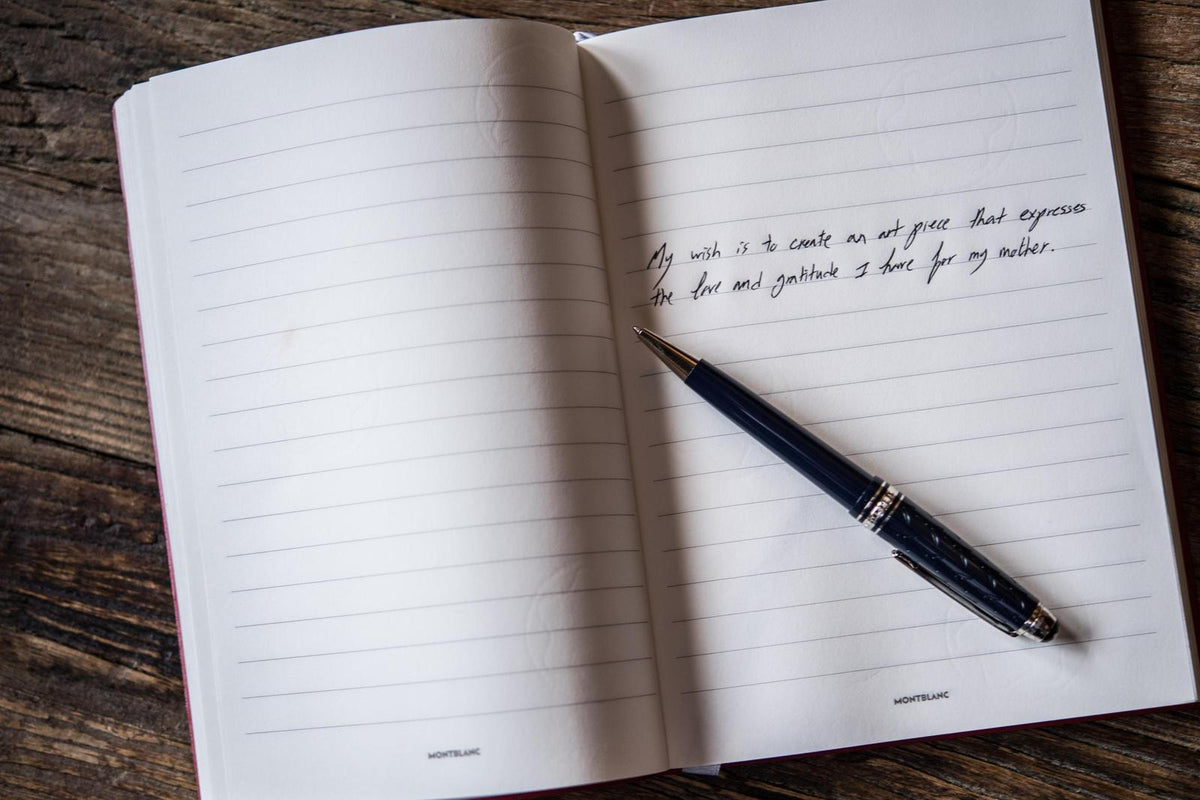 My wish is to create an art piece that expresses
the love and gratitude I have for my mother.
MONTBLANC
MONTBLANC